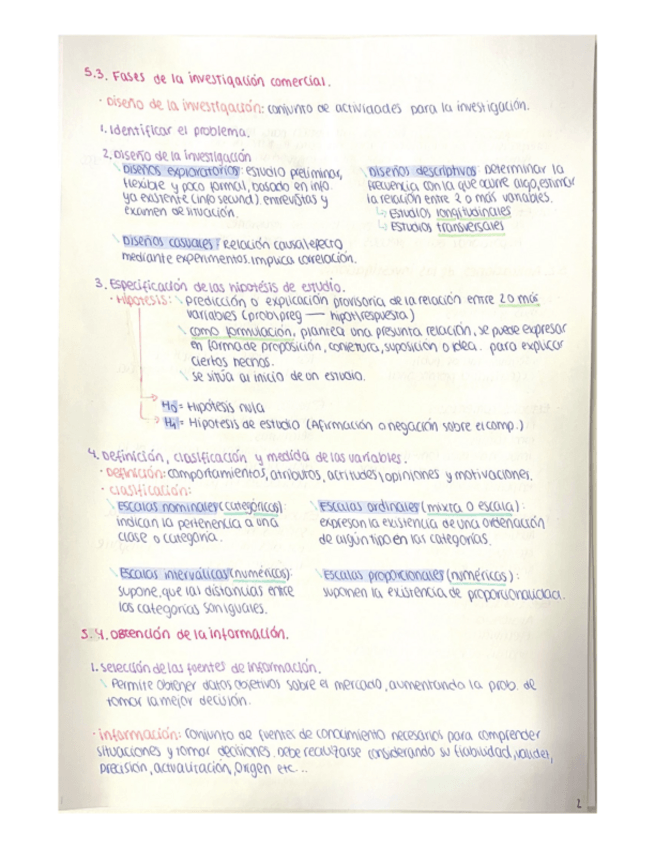 5.3. Fases de la investigación comercial.
· Diseño de la investigación: conjunto de actividades para la investigación.
1. Identificar el problema.
2. Diseño de la investigación
Diseños exploratorios: estudio preliminar,
flexible y poco formal, basado en info.
ya existente (info secund.) entrevistas y
examen de situación.
Diseños descriptivos: Determinar la
frecuencia con la que ocurre algo, estimar
la relación entre 2 o más variables.
↳ Estudios longitudinales
↳ Estudios transversales
Diseños casuales: Relación causal efecto
mediante experimentos. implica correlación.
3. Especificación de las hipótesis de estudio.
· Hipótesis: \ predicción o explicación provisoria de la relación entre 2 o más
variables (probl/preg — hipot/respuesta)
\ como formulación, plantea una presunta relación, se puede expresar
en forma de proposición, conjetura, suposición o idea. para explicar
ciertos hechos.
\ se sitúa al inicio de un estudio.
H0 = Hipótesis nula
H1 = Hipótesis de estudio (Afirmación o negación sobre el comp.)
4. Definición, clasificación y medida de las variables.
· Definición: comportamientos, atributos, actitudes, opiniones y motivaciones.
· Clasificación:
Escalas nominales (categóricas):
indican la pertenencia a una
clase o categoría.
Escalas ordinales (mixta o escala):
expresan la existencia de una ordenación
de algún tipo en las categorías.
Escalas interválicas (numéricas):
supone, que las distancias entre
las categorías son iguales.
Escalas proporcionales (numéricas):
suponen la existencia de proporcionalidad.
5.4. Obtención de la información.
1. Selección de las fuentes de información.
\ Permite obtener datos objetivos sobre el mercado, aumentando la prob. de
tomar la mejor decisión.
· información: Conjunto de fuentes de conocimiento necesarios para comprender
situaciones y tomar decisiones. debe realizarse considerando su fiabilidad, validez,
precisión, actualización, origen etc...
2